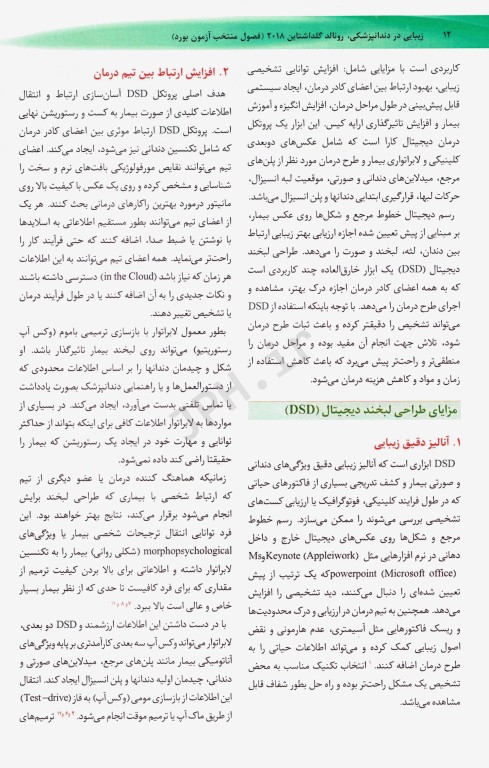 ۱۲ زیبایی در دندانپزشکی، رونالد گلداشتاین ۲۰۱۸ (فصول منتخب آزمون بورد)
کاربردی است با مزایایی شامل: افزایش توانایی تشخیصی
زیبایی، بهبود ارتباط بین اعضای کادر درمان، ایجاد سیستمی
قابل پیش‌بینی در طول مراحل درمان، افزایش انگیزه و آموزش
بیمار و افزایش تاثیرگذاری ارایه کیس. این ابزار یک پروتکل
درمان دیجیتال کارا است که شامل عکس‌های دوبعدی
کلینیکی و لابراتواری بیمار و طرح درمان مورد نظر از پلن‌های
مرجع، میدلاین‌های دندانی و صورتی، موقعیت لبه انسیزال،
حرکات لبها، قرارگیری ابتدایی دندانها و پلن انسیزال می‌باشد.
رسم دیجیتال خطوط مرجع و شکل‌ها روی عکس بیمار،
بر مبنایی از پیش تعیین شده اجازه ارزیابی بهتر زیبایی ارتباط
بین دندان، لثه، لبخند و صورت را می‌دهد. طراحی لبخند
دیجیتال (DSD) یک ابزار خارق‌العاده چند کاربردی است
که به همه اعضای کادر درمان اجازه درک بهتر، مشاهده و
اجرای طرح درمان را می‌دهد. با توجه باینکه استفاده از DSD
می‌تواند تشخیص را دقیقتر کرده و باعث ثبات طرح درمان
شود، تلاش جهت انجام آن مفید بوده و مراحل درمان را
منطقی‌تر و راحت‌تر پیش می‌برد که باعث کاهش استفاده از
زمان و مواد و کاهش هزینه درمان می‌شود.
مزایای طراحی لبخند دیجیتال (DSD)
۱. آنالیز دقیق زیبایی
DSD ابزاری است که آنالیز زیبایی دقیق ویژگی‌های دندانی
و صورتی بیمار و کشف تدریجی بسیاری از فاکتورهای حیاتی
که در طول فرایند کلینیکی، فوتوگرافیک یا ارزیابی کست‌های
تشخیصی بررسی می‌شوند را ممکن می‌سازد. رسم خطوط
مرجع و شکل‌ها روی عکس‌های دیجیتال خارج و داخل
دهانی در نرم افزارهایی مثل Keynote (Appleiwork)وMs
powerpoint (Microsoft office)که یک ترتیب از پیش
تعیین شده‌ای را دنبال می‌کنند، دید تشخیصی را افزایش
می‌دهد. همچنین به تیم درمان در ارزیابی و درک محدودیت‌ها
و ریسک فاکتورهایی مثل آسیمتری، عدم هارمونی و نقض
اصول زیبایی کمک کرده و می‌تواند اطلاعات حیاتی را به
طرح درمان اضافه کنند. ۱ انتخاب تکنیک مناسب به محض
تشخیص یک مشکل راحت‌تر بوده و راه حل بطور شفاف قابل
مشاهده می‌باشد.
۲. افزایش ارتباط بین تیم درمان
هدف اصلی پروتکل DSD آسان‌سازی ارتباط و انتقال
اطلاعات کلیدی از صورت بیمار به کست و رستوریشن نهایی
است. پروتکل DSD ارتباط موثری بین اعضای کادر درمان
که شامل تکنسین دندانی نیز می‌شود، ایجاد می‌کند. اعضای
تیم می‌توانند نقایص مورفولوژیکی بافت‌های نرم و سخت را
شناسایی و مشخص کرده و روی یک عکس با کیفیت بالا روی
مانیتور درمورد بهترین راکارهای درمانی بحث کنند. هر یک
از اعضای تیم می‌توانند بطور مستقیم اطلاعاتی به اسلایدها
با نوشتن یا ضبط صدا، اضافه کنند که حتی فرآیند کار را
راحت‌تر می‌نماید. همه اعضای تیم می‌توانند به این اطلاعات
هر زمان که نیاز باشد (in the Cloud) دسترسی داشته باشند
و نکات جدیدی را به آن اضافه کنند یا در طول فرآیند درمان
یا تشخیص تغییر دهند.
بطور معمول لابراتوار با بازسازی ترمیمی باموم (وکس آپ
رستوریتیو) می‌تواند روی لبخند بیمار تاثیرگذار باشد. او
شکل و چیدمان دندانها را بر اساس اطلاعات محدودی که
از دستورالعمل‌ها و یا راهنمایی دندانپزشک بصورت یادداشت
یا تماس تلفنی بدست می‌آورد، ایجاد می‌کند. در بسیاری از
مواردها به لابراتوار اطلاعات کافی برای اینکه بتواند از حداکثر
توانایی و مهارت خود در ایجاد یک رستوریشن که بیمار را
حقیقتا راضی کند داده نمی‌شود.
زمانیکه هماهنگ کننده درمان یا عضو دیگری از تیم
که ارتباط شخصی با بیماری که طراحی لبخند برایش
انجام می‌شود برقرار می‌کند، نتایج بهتر خواهند بود. این
فرد توانایی انتقال ترجیحات شخصی بیمار یا ویژگی‌های
morphopsychological (شکلی روانی) بیمار را به تکنسین
لابراتوار داشته و اطلاعاتی برای بالا بردن کیفیت ترمیم از
مقداری که برای فرد کافیست تا حدی که از نظر بیمار بسیار
خاص و عالی است بالا ببرد.
با در دست داشتن این اطلاعات ارزشمند و DSD دو بعدی،
لابراتوار می‌تواند وکس آپ سه بعدی کارآمدتری بر پایه ویژگی‌های
آناتومیکی بیمار مانند پلن‌های مرجع، میدلاین‌های صورتی و
دندانی، چیدمان اولیه دندانها و پلن انسیزال ایجاد کند. انتقال
این اطلاعات از بازسازی مومی (وکس آپ) به فاز (Test–drive)
از طریق ماک آپ یا ترمیم موقت انجام می‌شود. ترمیم‌های